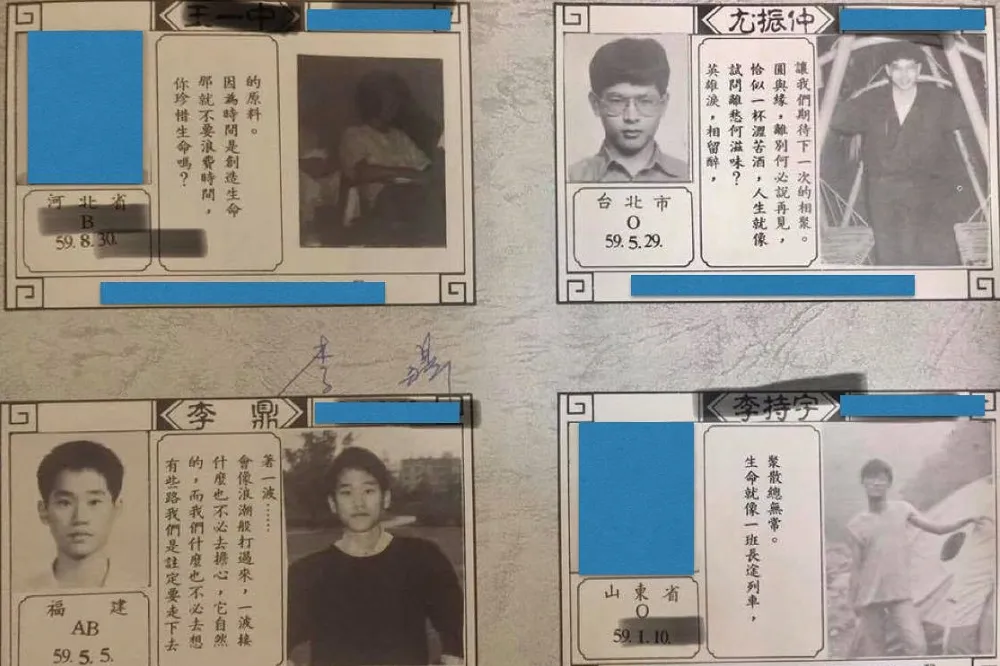 王一中
你珍惜生命嗎？
那就不要浪費時間，
因為時間是創造生命
的原料。
河北省
B
59.8.30.
尤振仲
英雄淚，相留醉，
試問離愁何滋味？
恰似一杯澀苦酒，人生就像
圓與緣，離別何必說再見，
讓我們期待下一次的相聚。
台北市
O
59.5.29.
李鼎
李鼎
有些路我們是註定要走下去
的，而我們什麼也不必去想
什麼也不必去擔心，它自然
會像浪潮般打過來，一波接
著一波……
福建
AB
59.5.5.
李持宇
生命就像一班長途列車，
聚散總無常。
山東省
O
59.1.10.